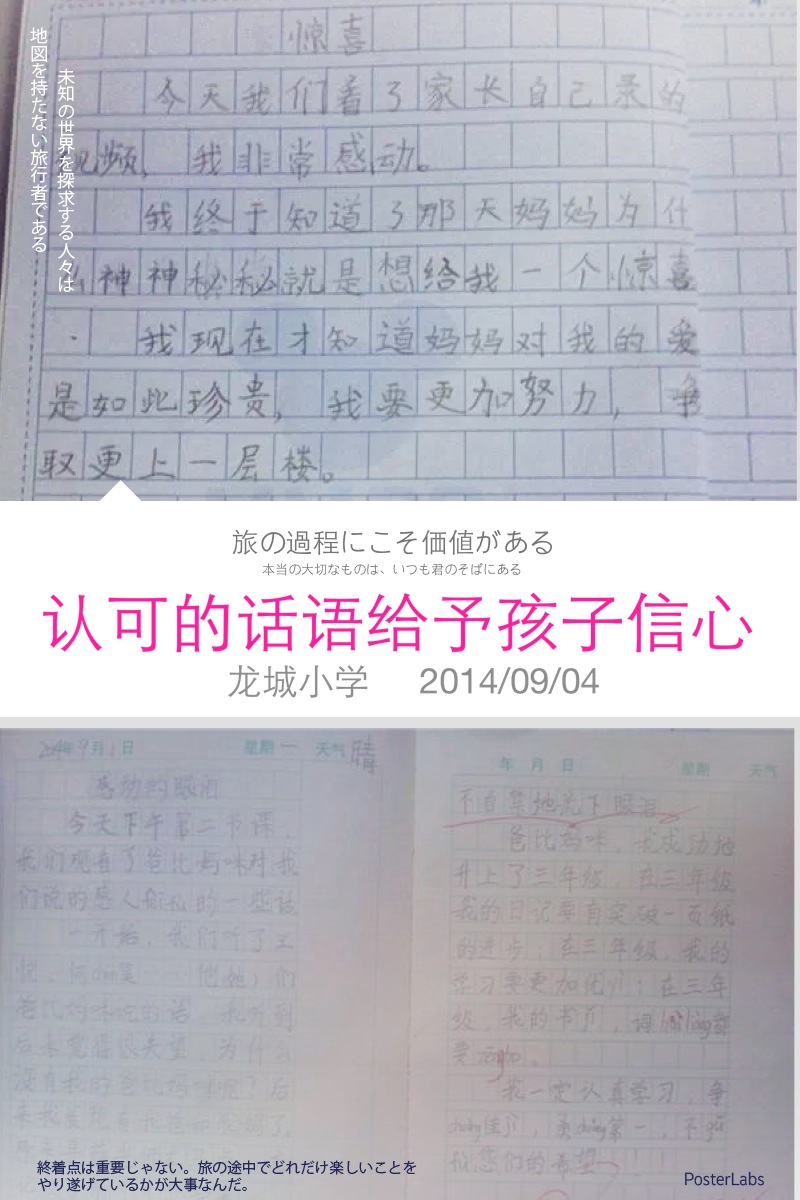 惊喜
今天我们看了家长自己录的
视频，我非常感动。
我终于知道了那天妈妈为什
么神神秘秘就是想给我一个惊喜
我现在才知道妈妈对我的爱
是如此珍贵，我要更加努力，争
取更上一层楼。
未知の世界を探求する人々は
地図を持たない旅行者である
旅の過程にこそ価値がある
本当の大切なものは、いつも君のそばにある
认可的话语给予孩子信心
龙城小学 2014/09/04
2014年9月1日 星期一 天气晴
感动的眼泪
今天下午第二节课，
我们观看了爸比妈咪对我
们说的感人肺腑的一些话
一开始，我们听了王
他她）们
爸比妈咪说的话，我听到
后来觉得很失望，为什么
没有我的爸比妈咪呢？后
年 月 日 星期 天气
不自禁地流下眼泪。
爸比妈咪，我成功地
升上了三年级，在三年级
我的日记要有突破一页纸
的进步；在三年级，我的
学习要更加优；在三年
级，我的书
我一定认真学习，争
第一，不
你您们的希望
終着点は重要じゃない。旅の途中でどれだけ楽しいことを
やり遂げているかが大事なんだ。
PosterLabs